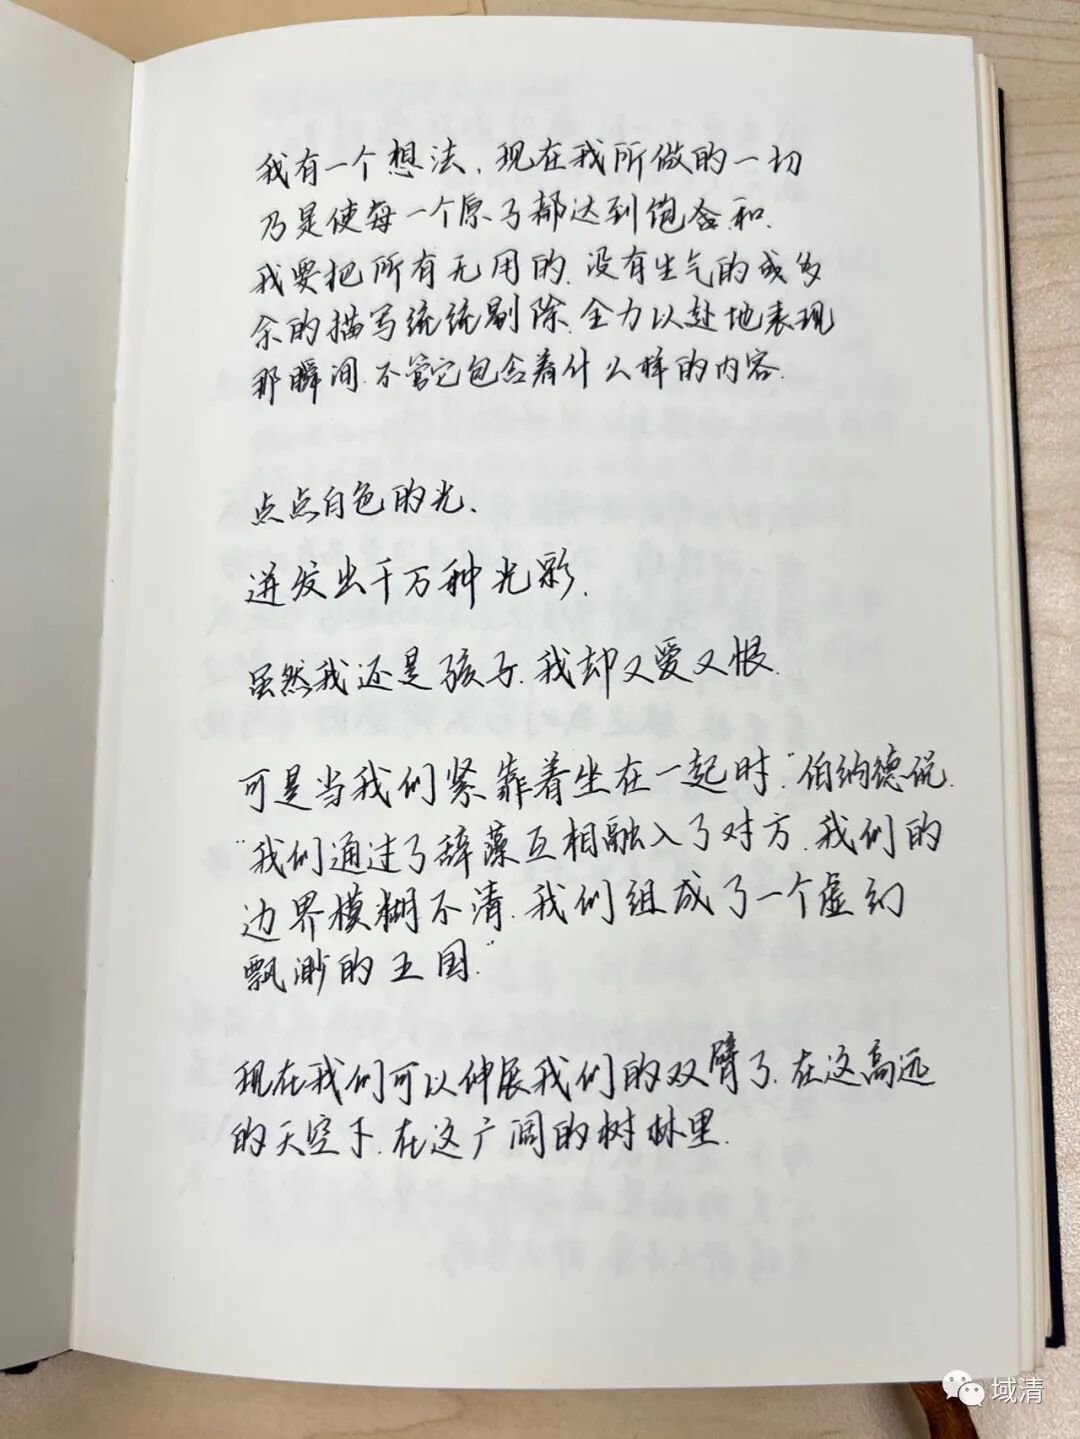 我有一个想法.现在我所做的一切
乃是使每一个原子都达到饱含和.
我要把所有无用的.没有生气的或多
余的描写统统剔除.全力以赴地表现
那瞬间.不管它包含着什么样的内容.
点点白色的光.
迸发出千万种光彩.
虽然我还是孩子.我却又爱又恨.
可是当我们紧靠着坐在一起时."伯纳德说.
"我们通过了辞藻互相融入了对方.我们的
边界模糊不清.我们组成了一个虚幻
飘渺的王国."
现在我们可以伸展我们的双臂了.在这高远
的天空下.在这广阔的树林里.
域清